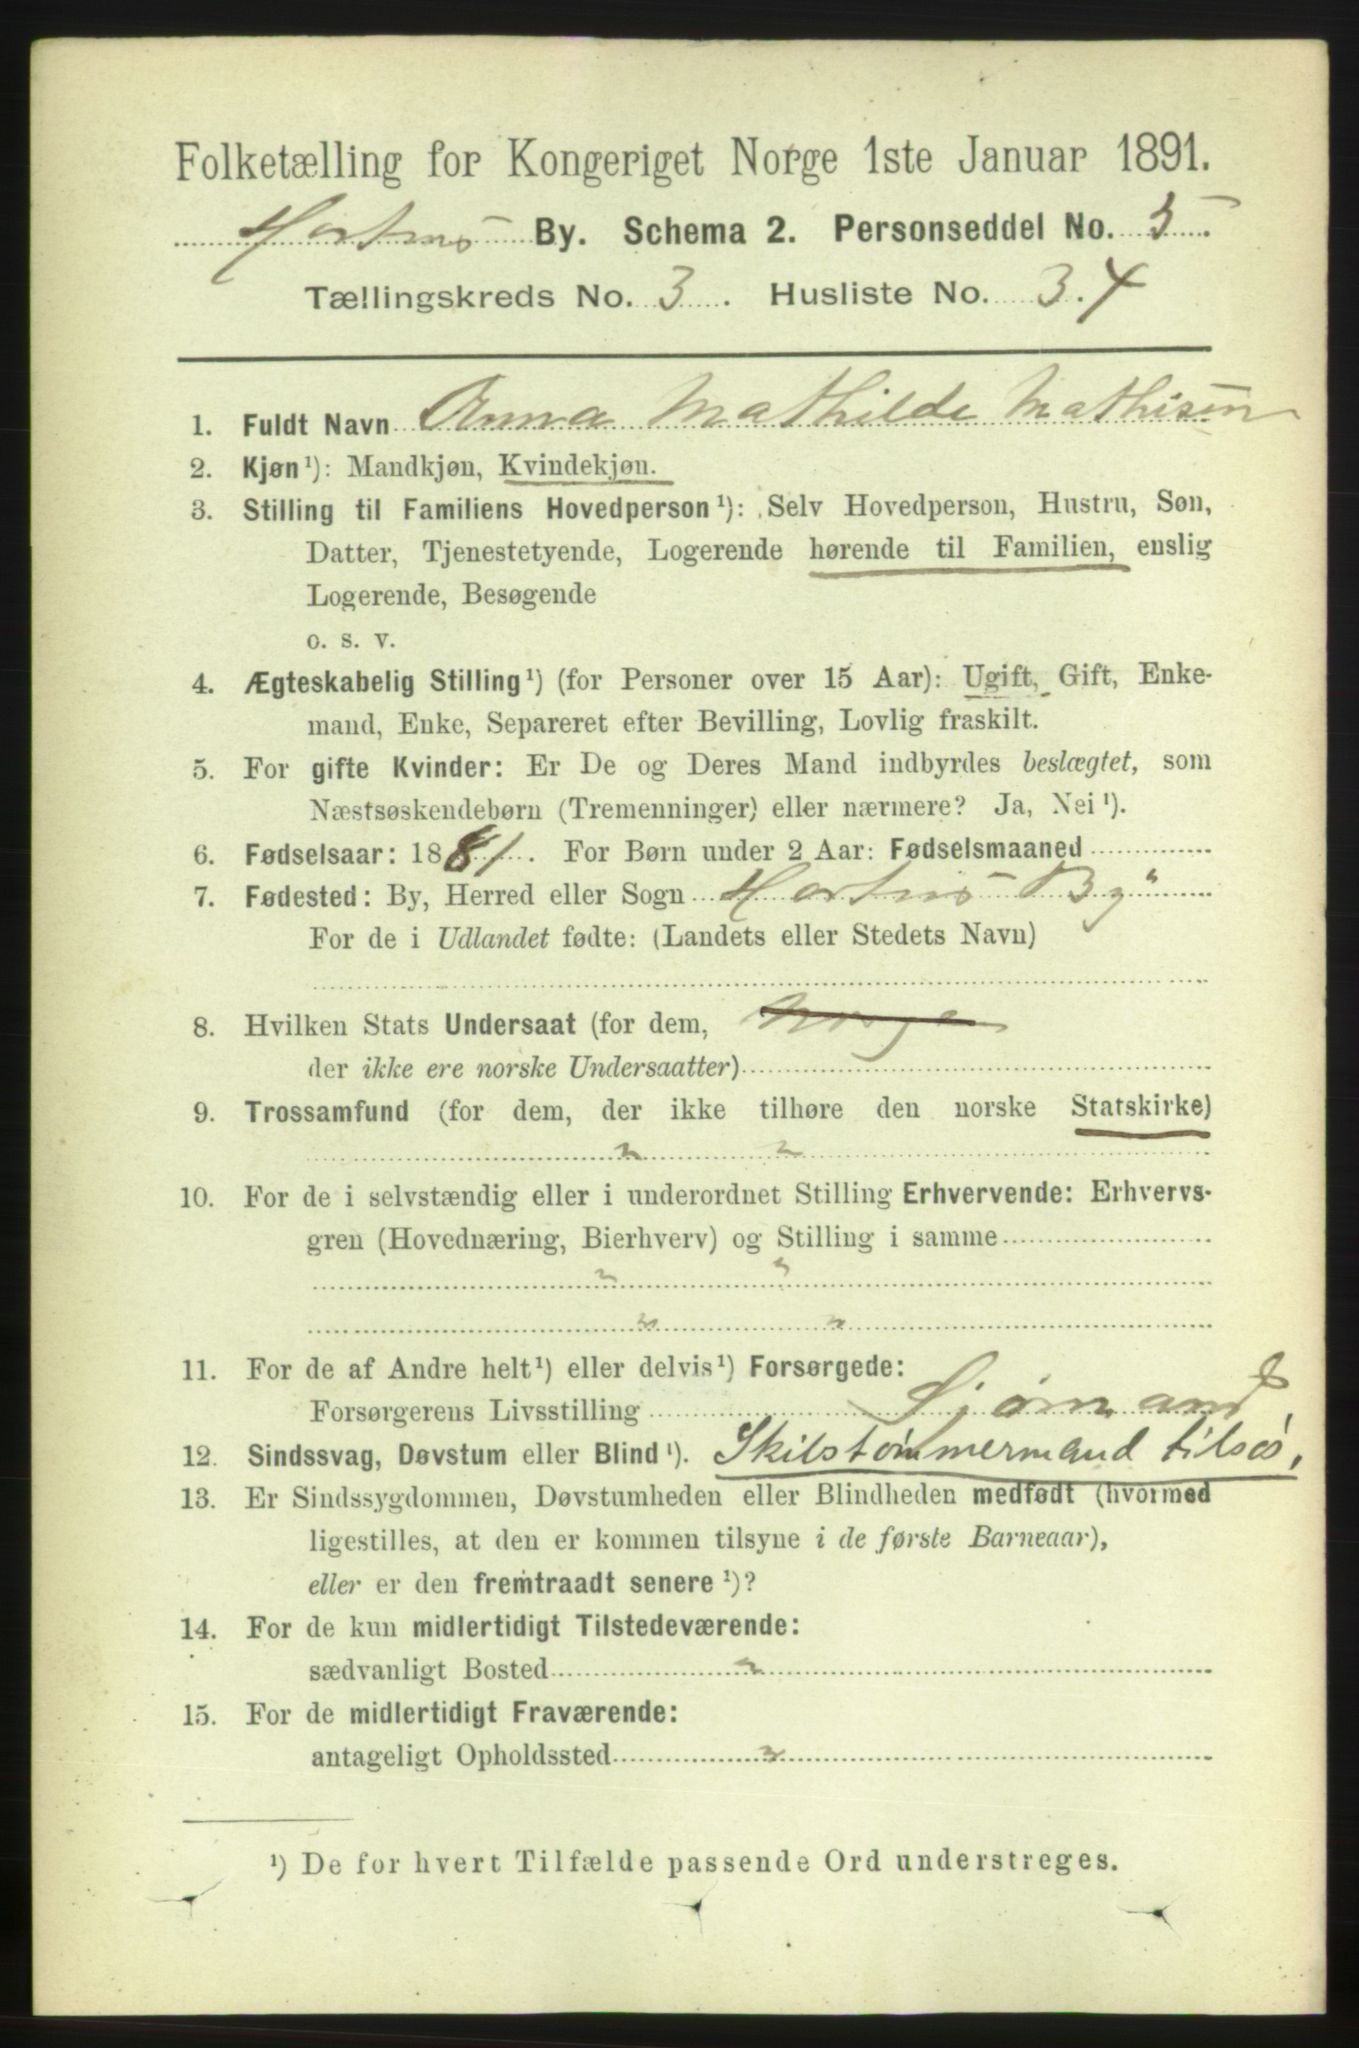 Folketælling for Kongeriget Norge 1ste Januar 1891.
Hortens By. Schema 2. Personseddel No. 5.
Tællingskreds No. 3. Husliste No. 34
1. Fuldt Navn Anna Mathilde Mathisen
2. Kjøn¹): Mandkjøn, Kvindekjøn.
3. Stilling til Familiens Hovedperson¹): Selv Hovedperson, Hustru, Søn,
Datter, Tjenestetyende, Logerende hørende til Familien, enslig
Logerende, Besøgende
o. s. v.
4. Ægteskabelig Stilling¹) (for Personer over 15 Aar): Ugift, Gift, Enke-
mand, Enke, Separeret efter Bevilling, Lovlig fraskilt.
5. For gifte Kvinder: Er De og Deres Mand indbyrdes beslægtet, som
Næstsøskendebørn (Tremenninger) eller nærmere? Ja, Nei¹).
6. Fødselsaar: 1881. For Børn under 2 Aar: Fødselsmaaned
7. Fødested: By, Herred eller Sogn Hortens By
For de i Udlandet fødte: (Landets eller Stedets Navn)
8. Hvilken Stats Undersaat (for dem, Norge
der ikke ere norske Undersaatter)
9. Trossamfund (for dem, der ikke tilhøre den norske Statskirke)
" "
10. For de i selvstændig eller i underordnet Stilling Erhvervende: Erhvervs-
gren (Hovednæring, Bierhverv) og Stilling i samme
" "
" "
11. For de af Andre helt¹) eller delvis¹) Forsørgede:
Forsørgerens Livsstilling Sjømand
12. Sindssvag, Døvstum eller Blind¹). Skibstømmermand tilsøs,
13. Er Sindssygdommen, Døvstumheden eller Blindheden medfødt (hvormed
ligestilles, at den er kommen tilsyne i de første Barneaar),
eller er den fremtraadt senere¹)?
14. For de kun midlertidigt Tilstedeværende:
sædvanligt Bosted "
15. For de midlertidigt Fraværende:
antageligt Opholdssted "
¹) De for hvert Tilfælde passende Ord understreges.